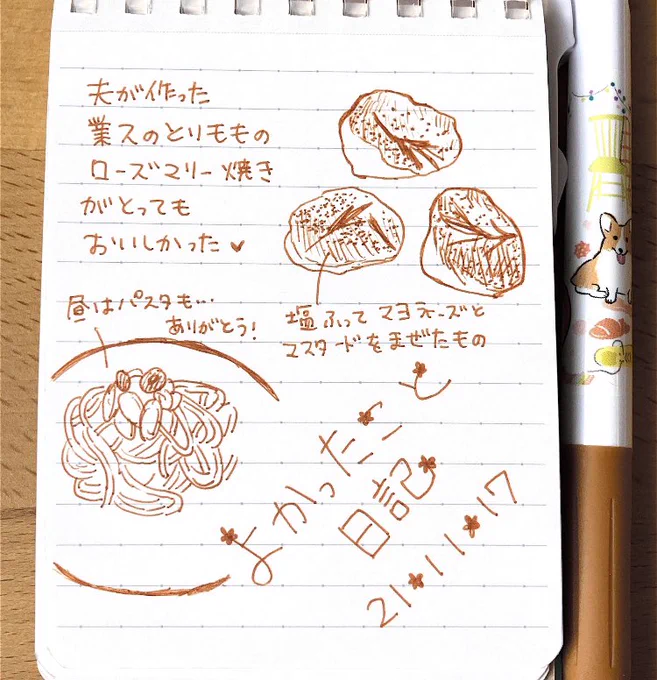 夫が作った
業スのとりももの
ローズマリー焼き
がとっても
おいしかった♥
昼はパスタも…
ありがとう!
塩ふって マヨネーズと
マスタードをまぜたもの
よかったこと
日記
21*11*17